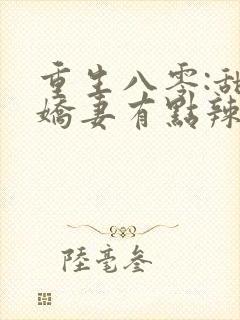 重生八零:甜
嬌妻有點辣
陸毫參